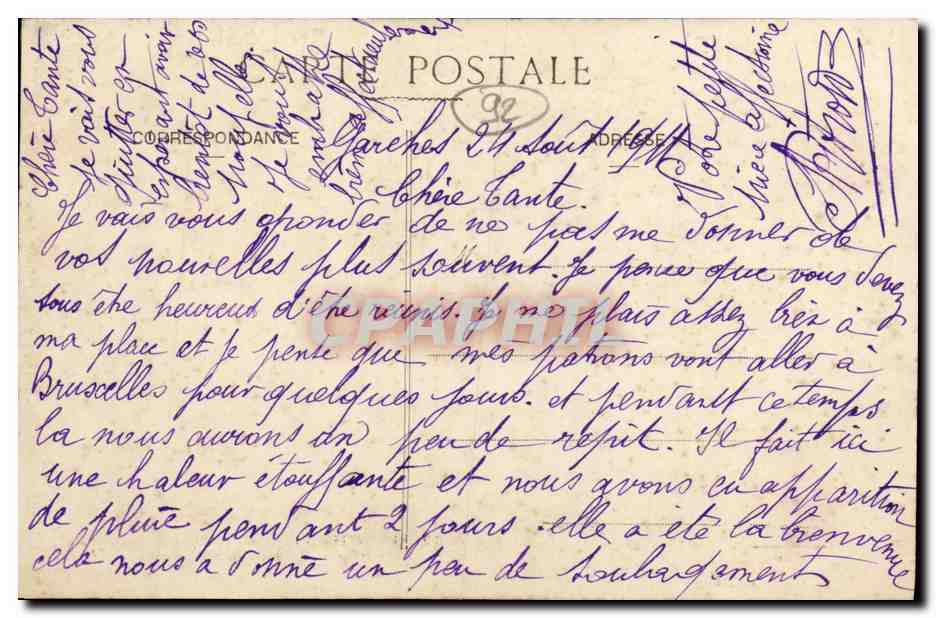 CARTE POSTALE
92
CORRESPONDANCE
ADRESSE
Garches 24 Août
Chère Tante.
Je vais vous gronder de ne pas me donner de
vos nouvelles plus souvent. Je pence que vous devez
tous être heureux d'être reunis. Je me plais assez bien à
ma place et je pense que mes patrons vont aller à
Bruxelles pour quelques jours. et pendant ce temps
la nous aurons un peu de repit. Il fait ici
une chaleur étouffante et nous avons eu apparition
de pluie pendant 2 jours. elle a été la bienvenue
cela nous a donné un peu de soulagement
Chère Tante
je vais vous
quitter en
espérant avoir
bientôt de vos
nouvelles.
Je vous
embrasse
bien affectueusement
Votre petite
nièce affectionnée
CPAPHIL